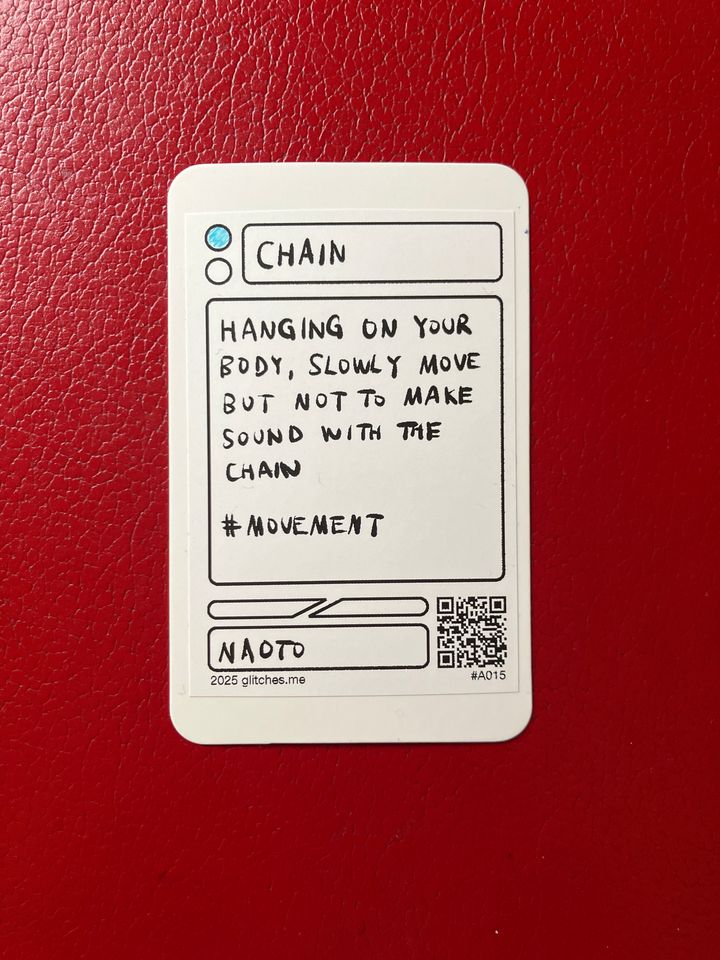 CHAIN
HANGING ON YOUR
BODY, SLOWLY MOVE
BUT NOT TO MAKE
SOUND WITH THE
CHAIN
#MOVEMENT
NAOTO
2025 glitches.me
#A015